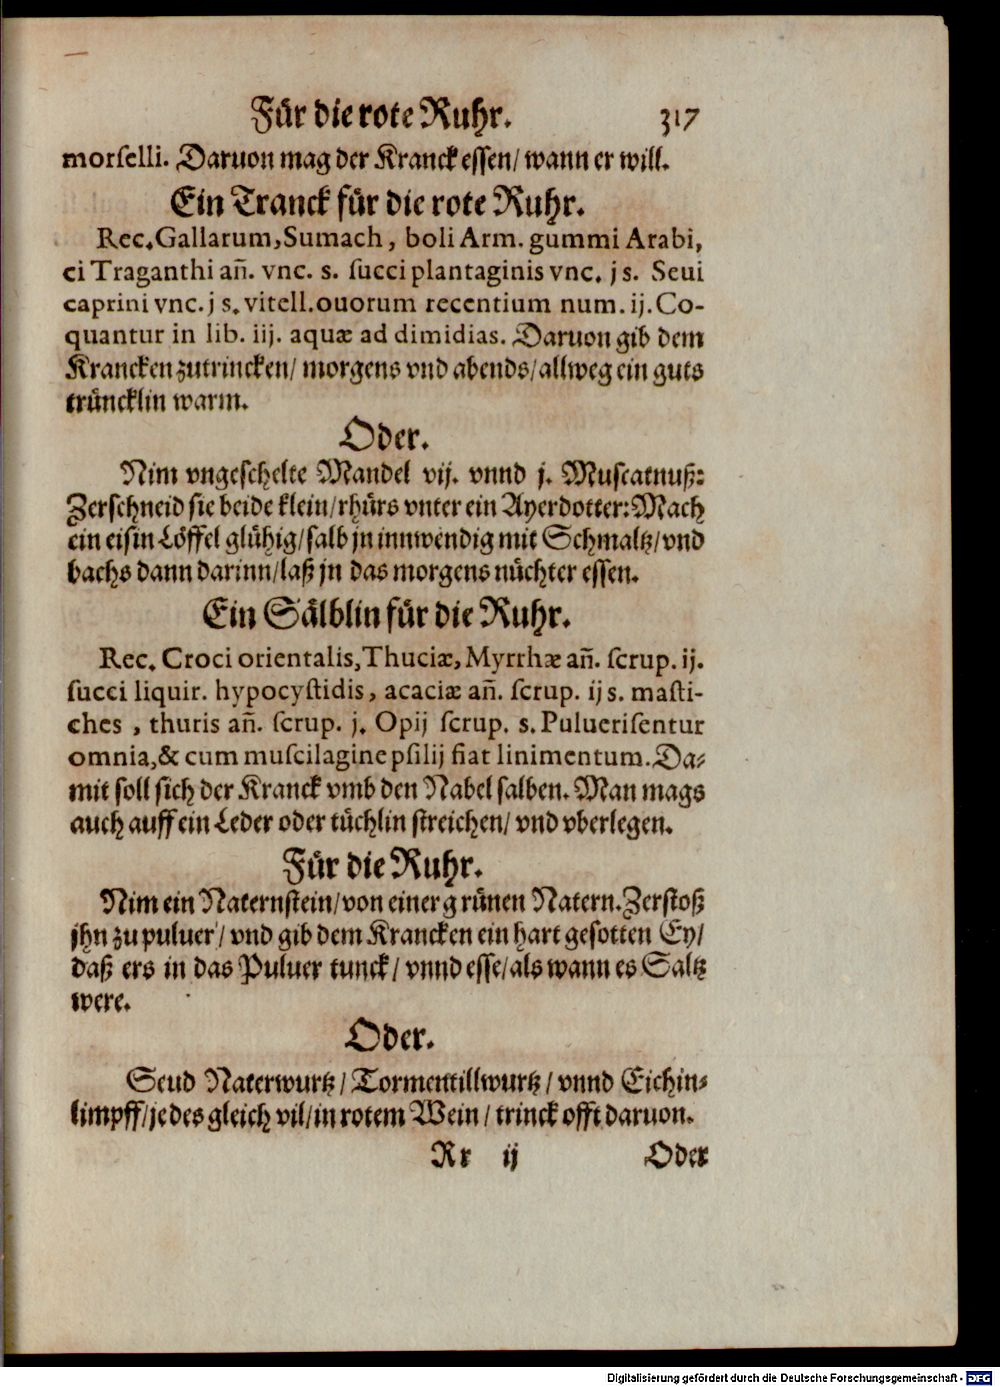 Für die rote Ruhr. 317
morſelli. Daruon mag der Kranck eſſen/ wann er will.
Ein Tranck für die rote Ruhr.
Rec. Gallarum, Sumach, boli Arm. gummi Arabi,
ci Traganthi añ. vnc. s. ſucci plantaginis vnc. j s. Seui
caprini vnc. j s. vitell. ouorum recentium num. ij. Co-
quantur in lib. iij. aquæ ad dimidias. Daruon gib dem
Krancken zutrincken/ morgens vnd abends/ allweg ein guts
trüncklin warm.
Oder.
Nim vngeſchelte Mandel vij. vnnd j. Muſcatnuß:
Zerſchneid ſie beide klein/ rhürs vnter ein Ayerdotter: Mach
ein eiſin Löffel glühig/ ſalb jn innwendig mit Schmaltz/ vnd
bachs dann darinn/ laß jn das morgens nüchter eſſen.
Ein Sälblin für die Ruhr.
Rec. Croci orientalis, Thuciæ, Myrrhæ añ. ſcrup. ij.
ſucci liquir. hypocyſtidis, acaciæ añ. ſcrup. ij s. maſti-
ches, thuris añ. ſcrup. j. Opij ſcrup. s. Pulueriſentur
omnia, & cum muſcilagine pſilij fiat linimentum. Da-
mit ſoll ſich der Kranck vmb den Nabel ſalben. Man mags
auch auff ein Leder oder tüchlin ſtreichen/ vnd vberlegen.
Für die Ruhr.
Nim ein Naternſtein/ von einer grünen Natern. Zerſtoß
jhn zu puluer/ vnd gib dem Krancken ein hart geſotten Ey/
daß ers in das Puluer tunck/ vnnd eſſe/ als wann es Saltz
were.
Oder.
Seud Naterwurtz/ Tormentillwurtz/ vnnd Eichin-
limpff/ jedes gleich vil/ in rotem Wein/ trinck offt daruon.
Rr ij Oder
Digitalisierung gefördert durch die Deutsche Forschungsgemeinschaft - DFG